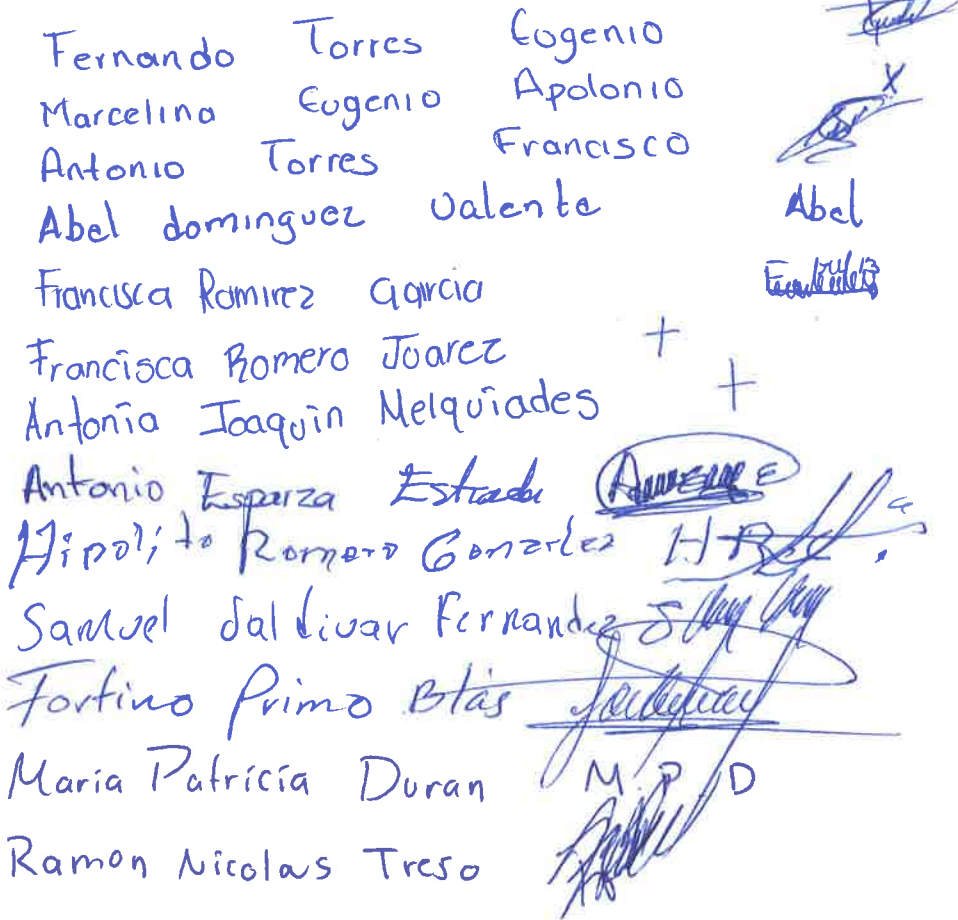 Fernando Torres Eogenio
Marcelina Eugenio Apolonio X
Antonio Torres Francisco
Abel dominguez Valente Abel
Francisca Ramirez Garcia
Francisca Romero Joarez +
Antonia Joaquin Melquiades +
Antonio Esparza Estrada
Hipolito Romero Gonzalez H R
Samuel Saldivar Fernandez
Fortino Primo Blás
Maria Patricia Duran M. P. D
Ramon Nicolas Treso